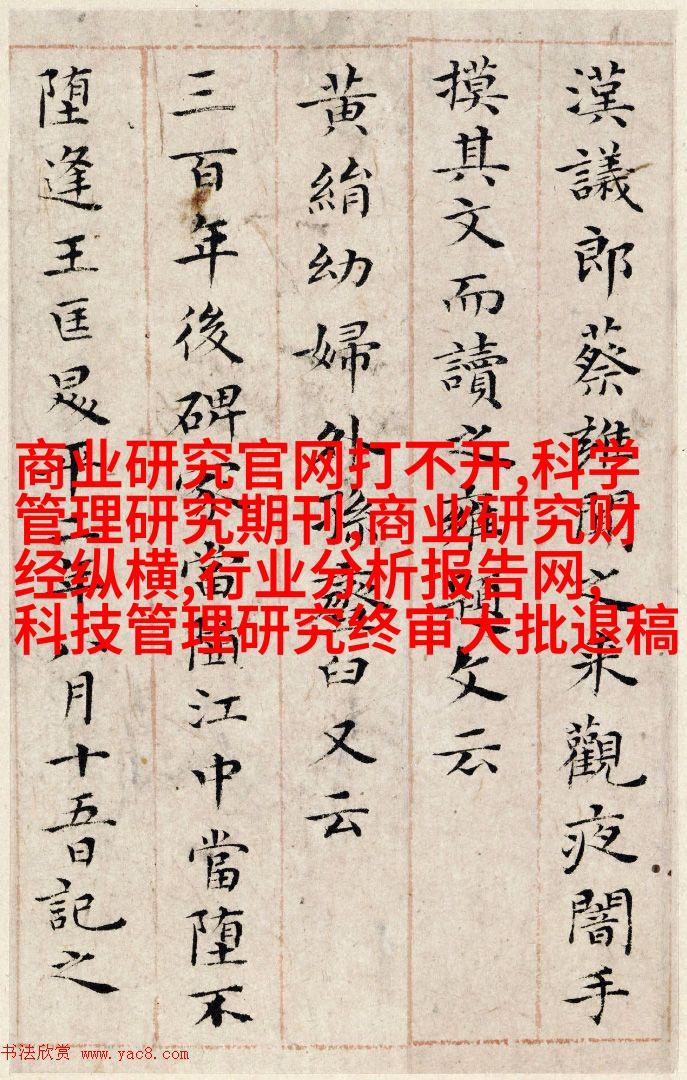 漢議郎蔡雍聞之来觀夜闇手
摸其文而讀之雍題文云
黄絹幼婦外孫臼又云
三百年後碑冢當墮江中當墮不
墮逢王匡昇平二年八月十五日記之
商业研究官网打不开,科学
管理研究期刊,商业研究财
经纵横,行业分析报告网,
科技管理研究终审大批退稿
书法欣赏 www.yac8.com